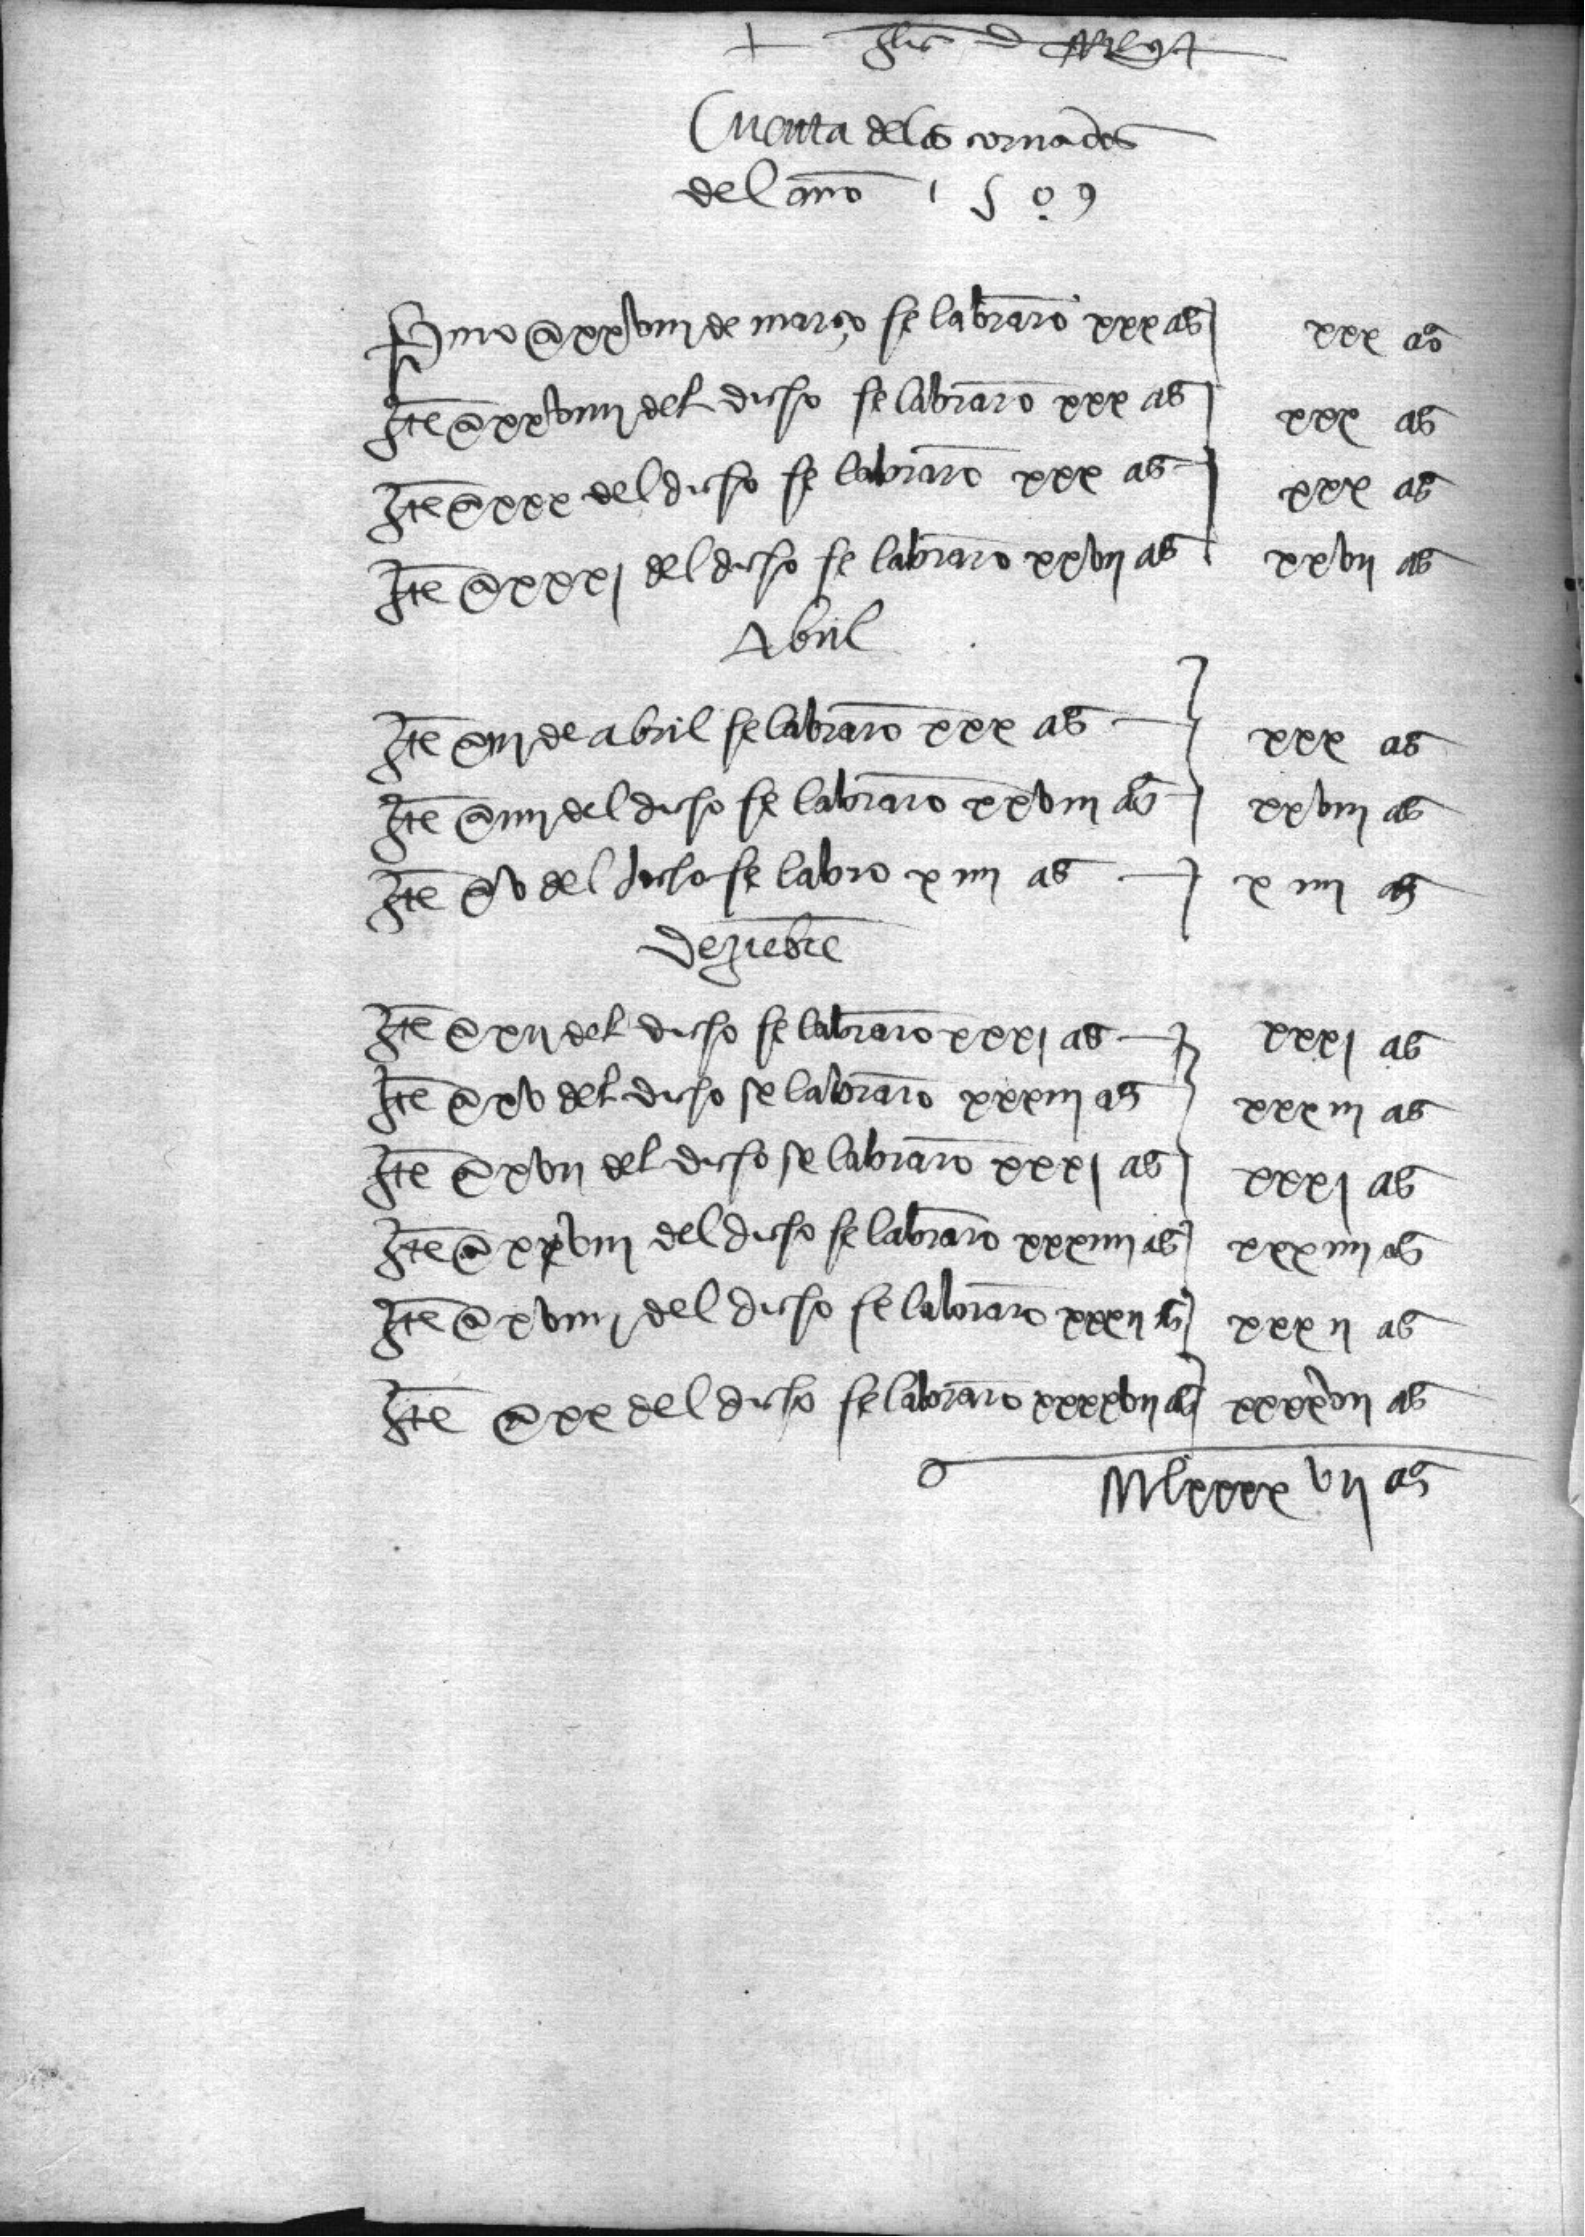 + Jhs
Cuenta delos cornados
del año 1509
Pmo a xxviii de março se labraro xxx as xxx as
Ite a xxviiii del dicho se labraro xxx as xxx as
Ite a xxx del dicho se labraro xxx as xxx as
Ite a xxxi del dicho se labraro xxvii as xxvii as
Abril
Ite a iii de abril se labraro xxx as xxx as
Ite a iiii del dicho se labraro xxviii as xxviii as
Ite a v del dicho se labro xiiii as xiiii as
Deziebre
Ite a xii del dicho se labraro xxxi as xxxi as
Ite a xv del dicho se labraro xxxiii as xxxiii as
Ite a xvii del dicho se labraro xxxi as xxxi as
Ite a xxviii del dicho se labraro xxxiiii as xxxiiii as
Ite a xviiii del dicho se labraro xxxii as xxxii as
Ite a xx del dicho se labraro xxxxvii as xxxxvii as
vii as